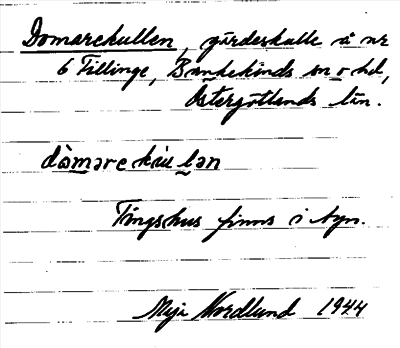 Domarekullen, gärdeskulle å nr
6 Fillinge, Bankekinds sn o hd,
Östergötlands län.
dòmarekul lən
Tingshus finns i byn.
Maja Nordlund 1944